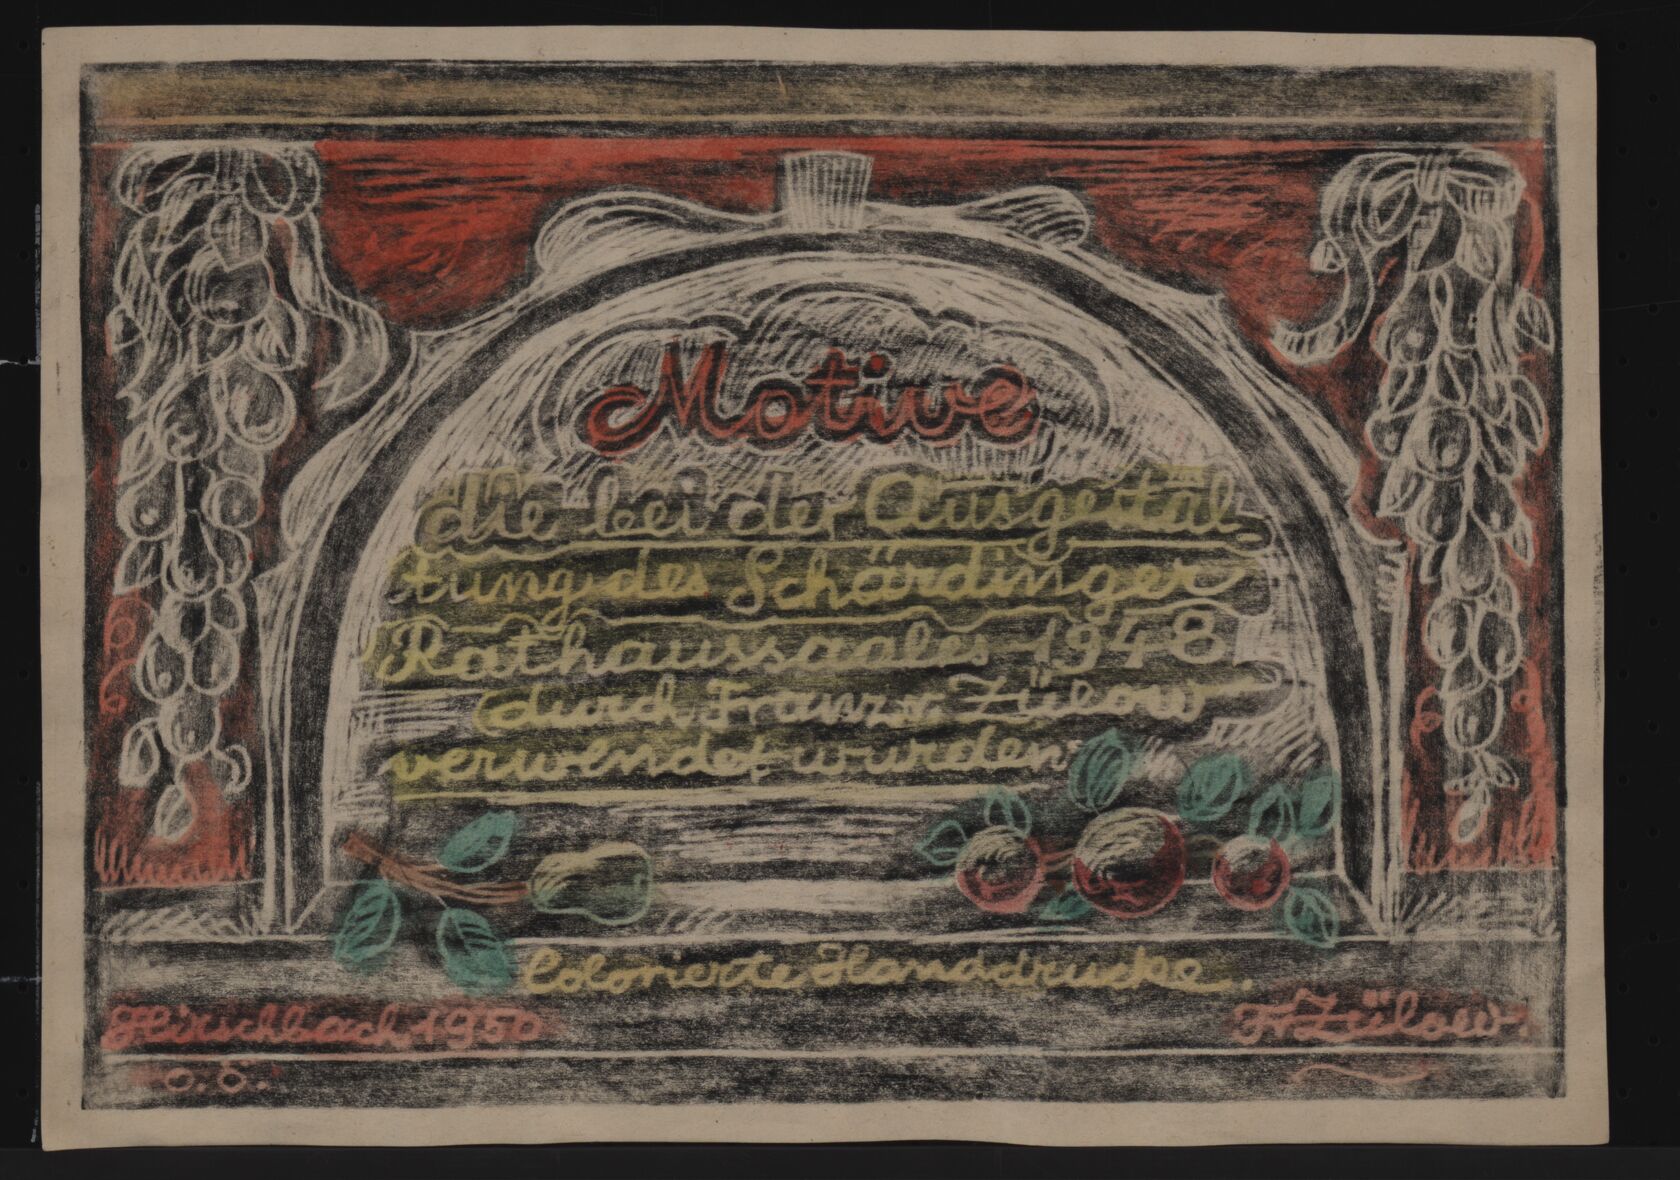 Motive
die bei der Ausgestal-
tung des Schärdinger
Rathaussaales 1948
durch Franz v. Zülow
verwendet wurden:
Colorierte Handdrucke.
Hirschbach 1950
o.ö.
FrZülow.